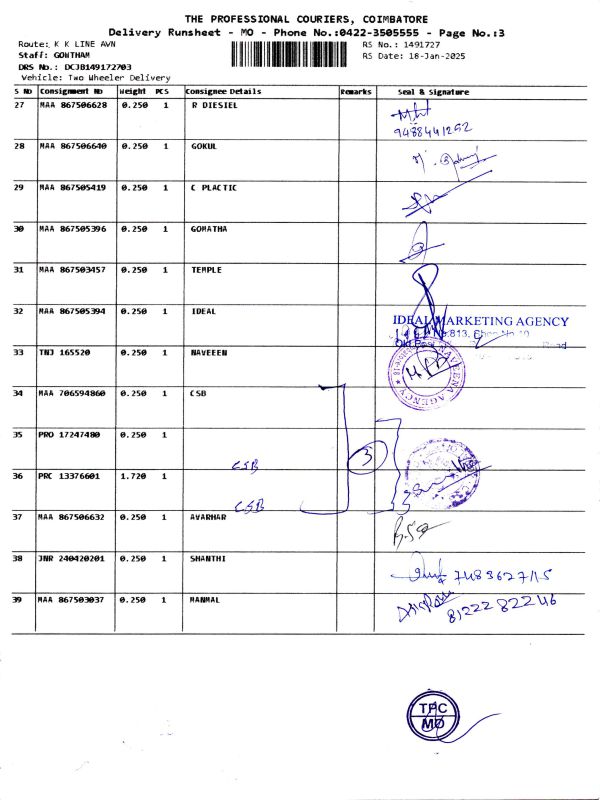 THE PROFESSIONAL COURIERS, COIMBATORE
Delivery Runsheet - MO - Phone No.:0422-3505555 - Page No.:3
Route: K K LINE AVN
RS No.: 1491727
Staff: GOWTHAM
RS Date: 18-Jan-2025
DRS No.: DCJB149172703
Vehicle: Two Wheeler Delivery
S NO Consignment NO Weight PCS Consignee Details Remarks Seal & Signature
27 MAA 867506628 0.250 1 R DIESIEL
9488441252
28 MAA 867506640 0.250 1 GOKUL
29 MAA 867505419 0.250 1 C PLACTIC
30 MAA 867505396 0.250 1 GOMATHA
31 MAA 867503457 0.250 1 TEMPLE
32 MAA 867505394 0.250 1 IDEAL
IDEAL MARKETING AGENCY
33 TNJ 165520 0.250 1 NAVEEEN
NAVEENA AGENCY
34 MAA 706594860 0.250 1 CSB
35 PRO 17247480 0.250 1
CSB
3
36 PRC 13376601 1.720 1
CSB
37 MAA 867506632 0.250 1 AVARHAR
38 JNR 240420201 0.250 1 SHANTHI
39 MAA 867503037 0.250 1 MANMAL
8122282246
TPC
MO